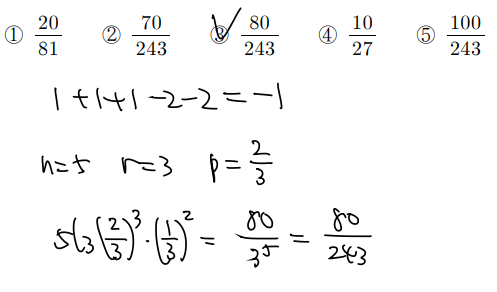 ① 20/81 ② 70/243 ③ 80/243 ④ 10/27 ⑤ 100/243
1+1+1-2-2=-1
n=5 r=3 p=2/3
5C3(2/3)^3·(1/3)^2 = 80/3^5 = 80/243